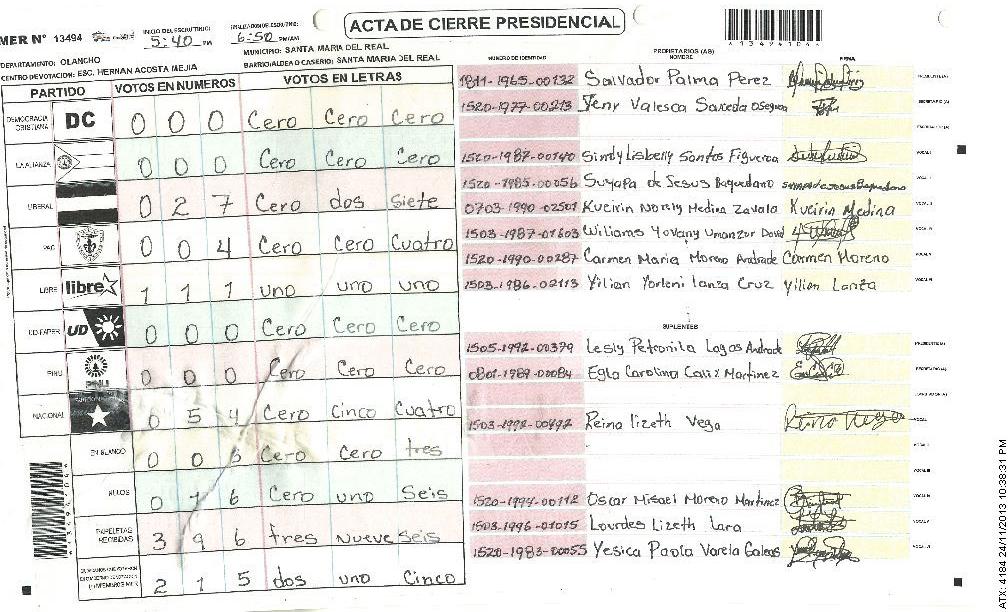 ACTA DE CIERRE PRESIDENCIAL
MER Nº 13494
INICIO DEL ESCRUTINIO: 5:40 PM
6:50 PM/AM
DEPARTAMENTO: OLANCHO
MUNICIPIO: SANTA MARIA DEL REAL
CENTRO DE VOTACION: ESC. HERNAN ACOSTA MEJIA
BARRIO/ALDEA O CASERIO: SANTA MARIA DEL REAL
*13494106*
PARTIDO VOTOS EN NUMEROS VOTOS EN LETRAS
DEMOCRACIA CRISTIANA DC 0 0 0 Cero Cero Cero
LA ALIANZA 0 0 0 Cero Cero Cero
LIBERAL 0 2 7 Cero dos siete
PAC 0 0 4 Cero Cero Cuatro
LIBRE libre 1 1 1 uno uno uno
UD-FAPER UD 0 0 0 Cero Cero Cero
PINU PINU 0 0 0 Cero Cero Cero
NACIONAL 0 5 4 Cero Cinco Cuatro
EN BLANCO 0 0 3 Cero Cero tres
NULOS 0 1 6 Cero uno Seis
PAPELETAS RECIBIDAS 3 9 6 tres nueve seis
2 1 5 dos uno Cinco
PROPIETARIOS (AS)
NUMERO DE IDENTIDAD NOMBRE FIRMA
1811-1965-00132 Salvador Palma Perez PRESIDENTE(A)
1520-1977-00213 Jeny Valesca Sauceda Oseguera SECRETARIO (A)
ESCRUTADOR (A)
1520-1987-00140 Sindy Lisberly Santos Figueroa VOCAL I
1520-1985-00056 Suyapa de Jesus Baquedano Suyapa de Jesus Baquedano
0703-1990-02501 Kueirin Norely Medina Zavala Kueirin Medina
1503-1987-01603 Wiliams Yovany Umanzor David
1520-1990-00287 Carmen Maria Moreno Andrade Carmen Moreno
1503-1986-02113 Yilian Yorleni Lanza Cruz Yilian Lanza
SUPLENTES
1505-1992-00379 Lesly Petronila Lagos Andrade PRESIDENTE(A)
0801-1989-00084 Egla Carolina Calix Martinez SECRETARIO (A)
1503-1992-00492 Reina Lizeth Vega Reina Vega
1520-1994-00112 Oscar Misael Moreno Martinez
1503-1996-01015 Lourdes Lizeth Lara
1520-1983-00055 Yesica Paola Varela Galeas
ATX: 4184 24/11/2013 10:38:31 PM